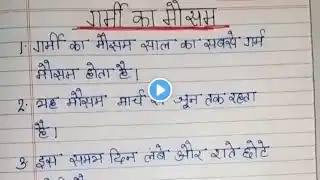 गर्मी का मौसम
1. गर्मी का मौसम साल का सबसे गर्म
मौसम होता है।
2. यह मौसम मार्च जून तक रहता
है।
3. इस समय दिन लंबे और राते छोटे